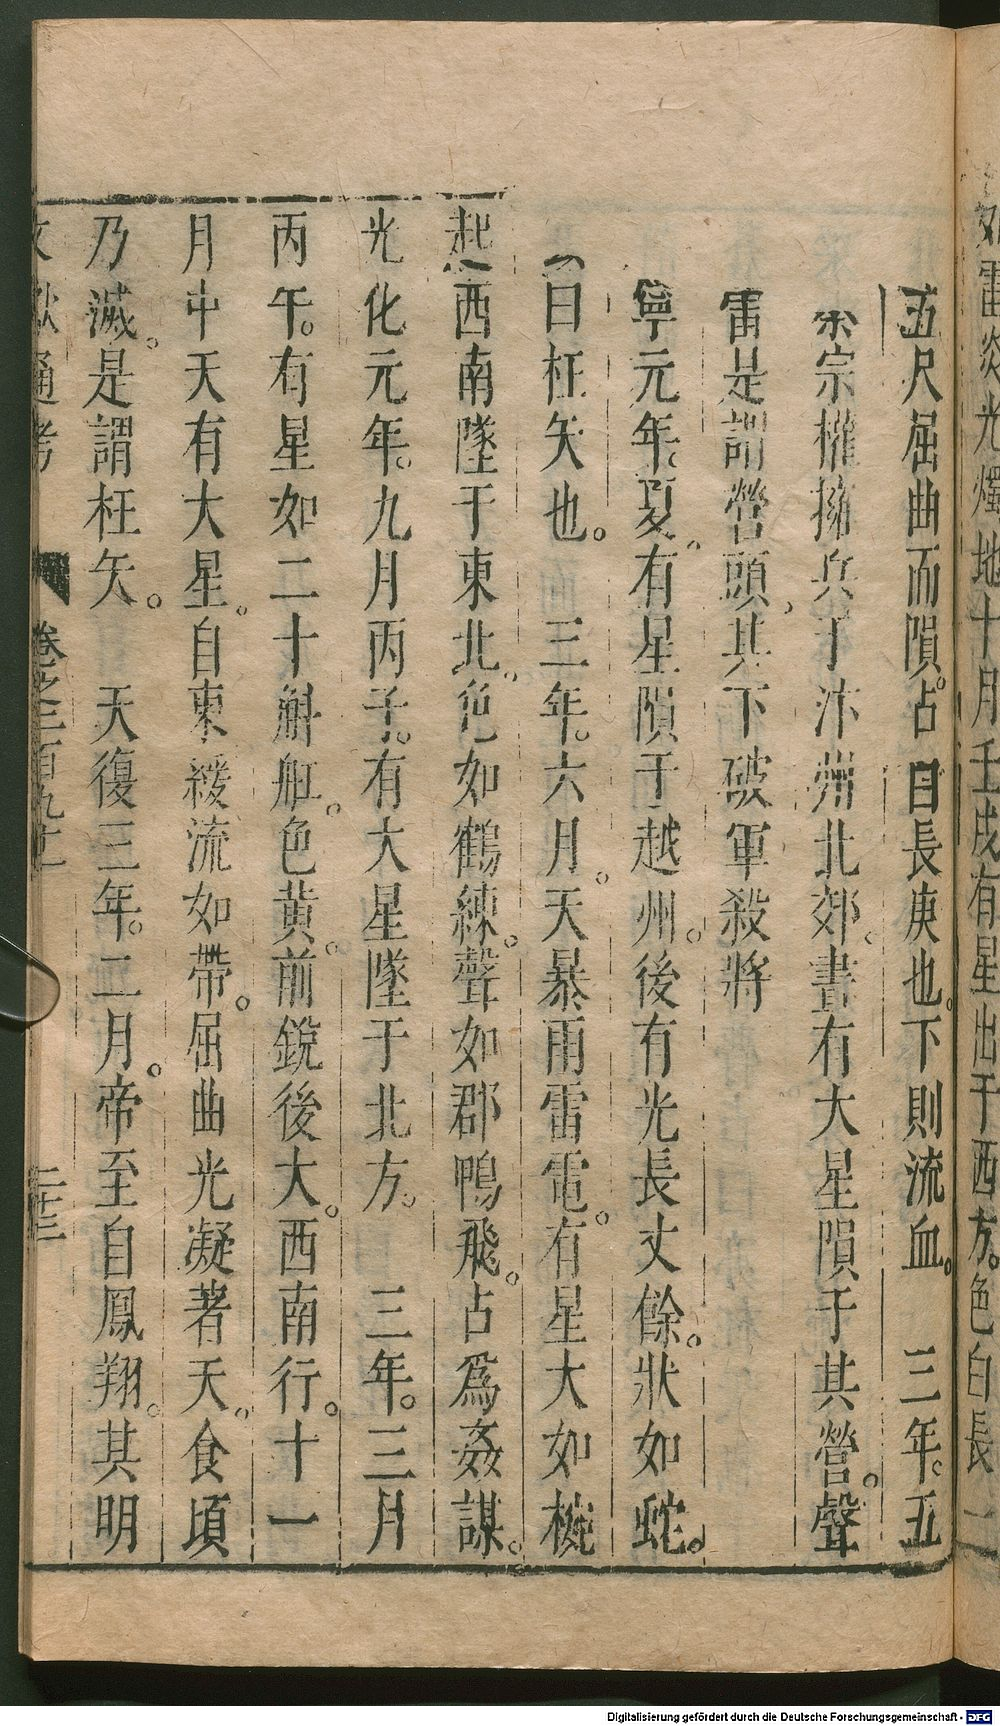 如雷炎光燭地十月壬戌有星出于西方。色白長一
五尺屈曲而隕。占曰長庚也。下則流血。　三年。五
宗權擁兵于汴州北郊。晝有大星隕于其營。聲
雷是謂營頭。其下破軍殺將
寧元年。夏。有星隕于越州。後有光長丈餘。狀如蛇。
曰枉矢也。　三年。六月。天暴雨雷電。有星大如椀
起西南墜于東北。色如鶴練。聲如郡鴨飛。占爲姦謀。
光化元年。九月丙子。有大星墜于北方。　三年。三月
丙午。有星如二十斛舡。色黃。前銳後大。西南行。十一
月中天有大星。自東緩流如帶。屈曲光凝著天。食頃
乃滅。是謂枉矢。　天復三年。二月。帝至自鳳翔。其明
文獻通考　卷之二百九十一　二十三
Digitalisierung gefördert durch die Deutsche Forschungsgemeinschaft - DFG